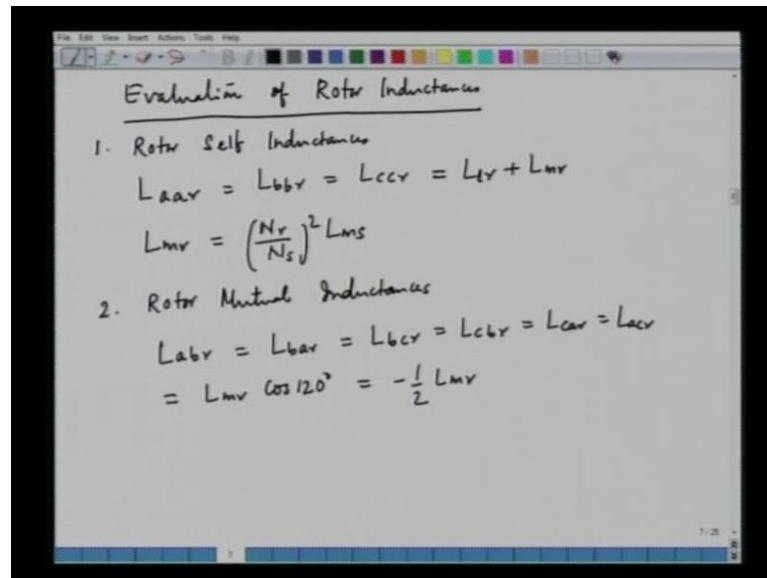 File Edit View Insert Actions Tools Help
Evaluation of Rotor Inductances
1. Rotor Self Inductances
Laar = Lbbr = Lccr = Llr + Lmr
Lmr = (Nr/Ns)² Lms
2. Rotor Mutual Inductances
Labr = Lbar = Lbcr = Lcbr = Lcar = Lacr
= Lmr Cos 120° = -1/2 Lmr
7/25
7